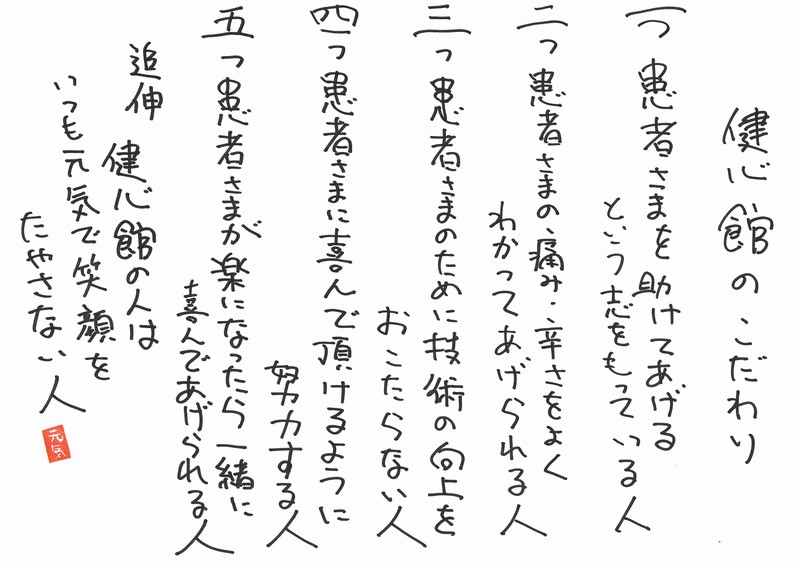 健心館のこだわり
一つ患者さまを助けてあげる
という志をもっている人
二つ患者さまの痛み・辛さをよく
わかってあげられる人
三つ患者さまのために技術の向上を
おこたらない人
四つ患者さまに喜んで頂けるように
努力する人
五つ患者さまが楽になったら一緒に
喜んであげられる人
追伸
健心館の人は
いつも元気で笑顔を
たやさない人
元気